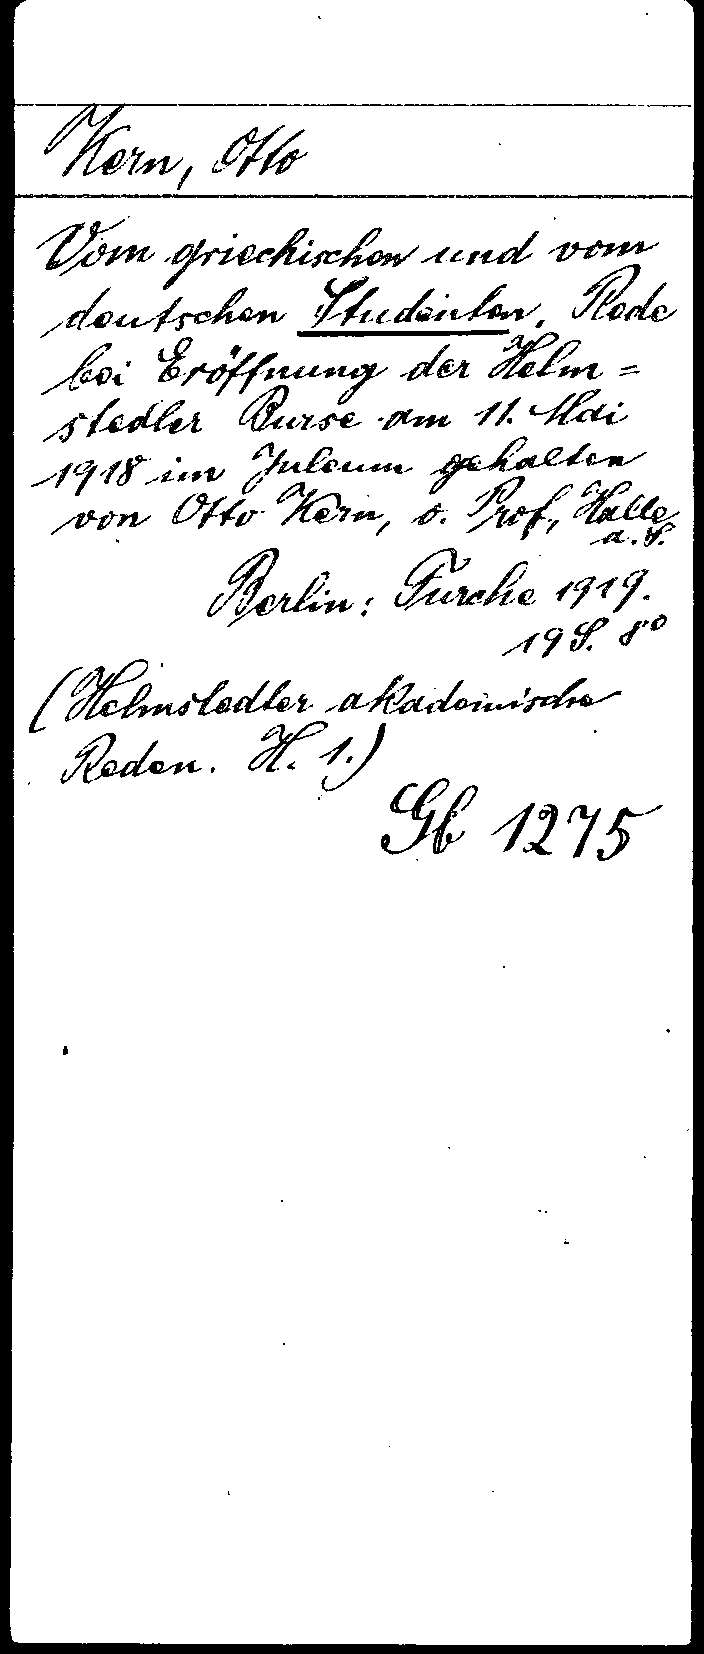 Kern, Otto
Vom griechischen und vom
deutschen Studenten. Rede
bei Eröffnung der Helm=
stedter Burse am 11. Mai
1918 im Juleum gehalten
von Otto Kern, o. Prof., Halle
a. S.
Berlin: Furche 1919.
19 S. 8°
(Helmstedter akademische
Reden. H. 1.)
Gb 1275